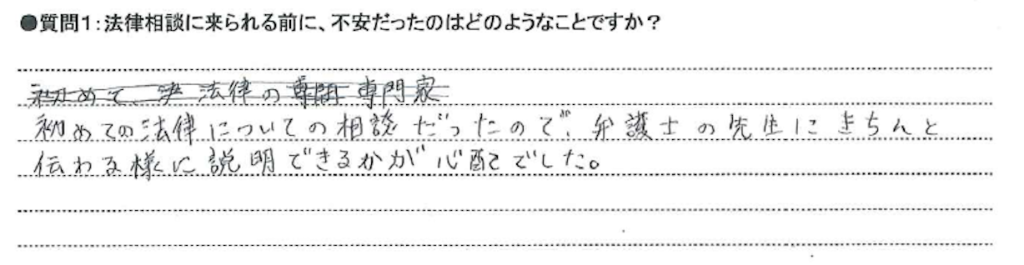 ●質問1：法律相談に来られる前に、不安だったのはどのようなことですか？
初めて、決 法律の 専門 専門家
初めての法律についての相談だったので、弁護士の先生にきちんと
伝わる様に説明できるかが心配でした。